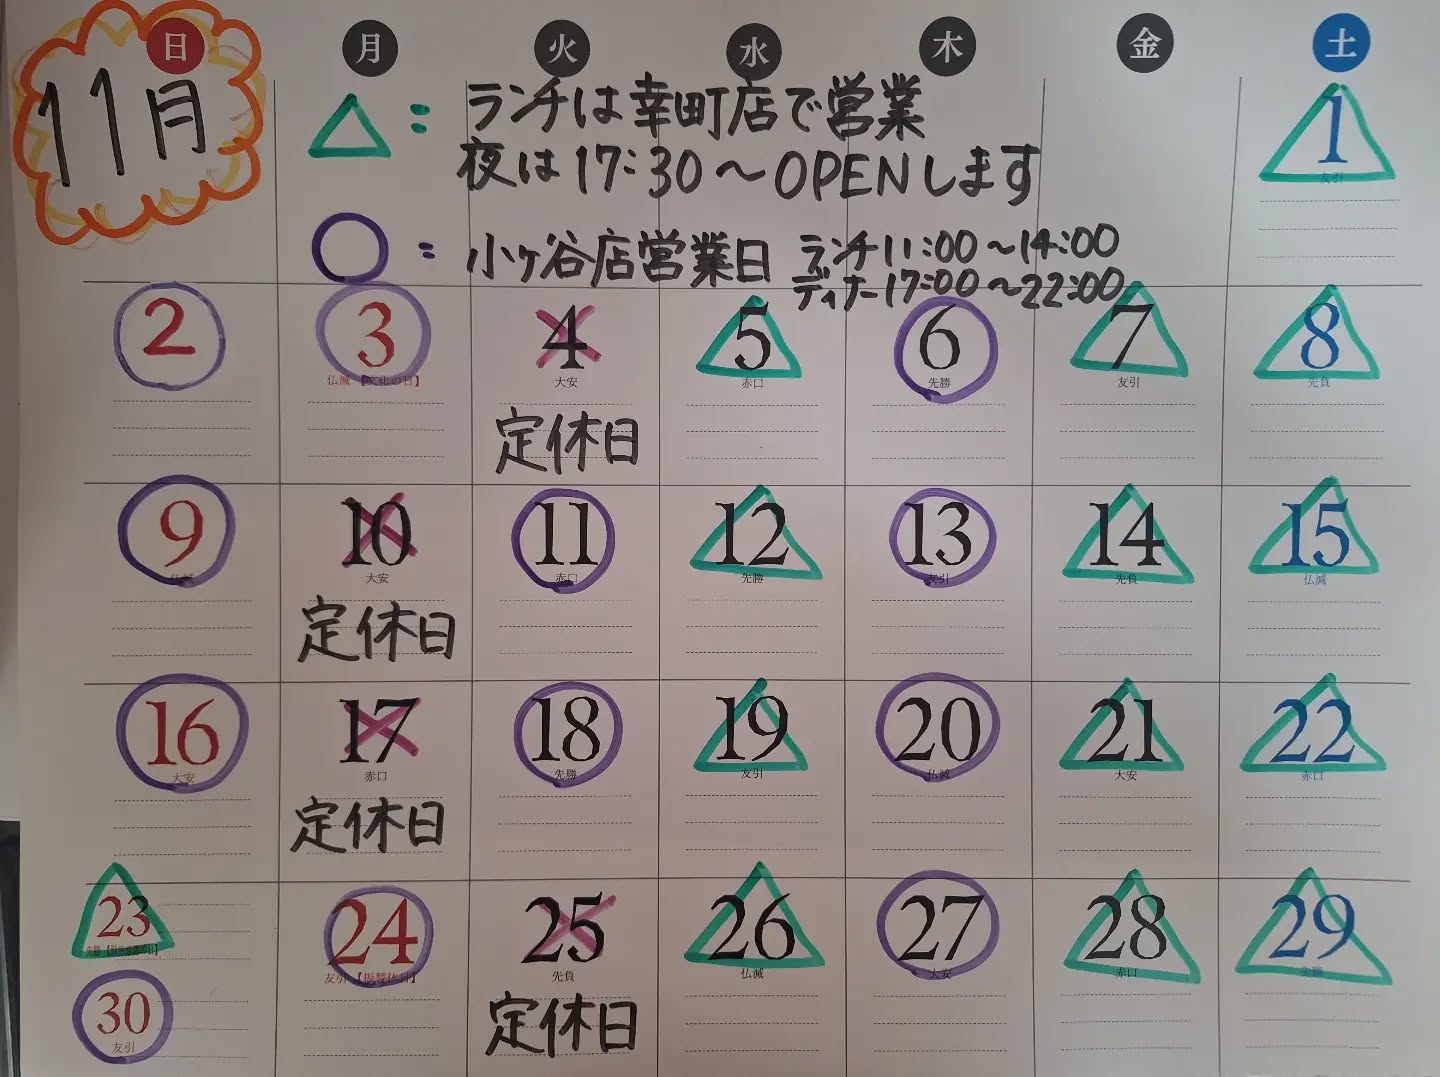 日 月 火 水 木 金 土
11月
△：ランチは幸町店で営業
夜は17:30〜OPENします
○：小ヶ谷店営業日 ランチ11:00〜14:00
ディナー17:00〜22:00
1
友引
2 3 4 5 6 7 8
仏滅【文化の日】 大安 赤口 先勝 友引 先負
定休日
9 10 11 12 13 14 15
仏滅 大安 赤口 先勝 友引 先負 仏滅
定休日
16 17 18 19 20 21 22
大安 赤口 先勝 友引 仏滅 大安 赤口
定休日
23 24 25 26 27 28 29
先勝【勤労感謝の日】 友引【振替休日】 先負 仏滅 大安 赤口 先勝
定休日
30
友引